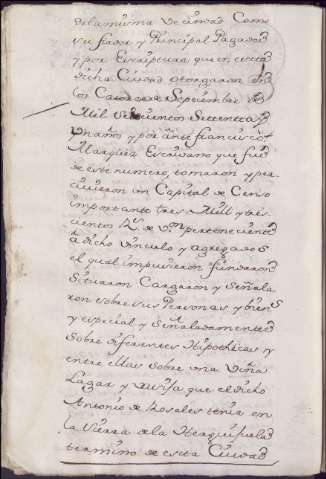 de la misma Vecindad Como
su fiador y Principal Pagador
y por Escriptura que en esta
dicha Ciudad otorgaron
los Catorze de Septiembre de
Mil Seiscientos Settenta
un años y por ante francisco
Marquez Escrivano que fué
de este numero, tomaron y per
civieron un Capital de Censo
importante tres Mill y tres
cientos Rs. de Vn. perteneciente
a dicho vinculo y agregados
el qual impusieron fundaron
Situaron Cargaron y Señala
ron sobre sus Personas y bienes
y especial y Señaladamente
Sobre diferentes Hipothecas y
entre ellas Sobre una Viña
Lagar y que el dicho
Antonio de Rosales tenia en
la Sierra de la
termino de esta Ciudad